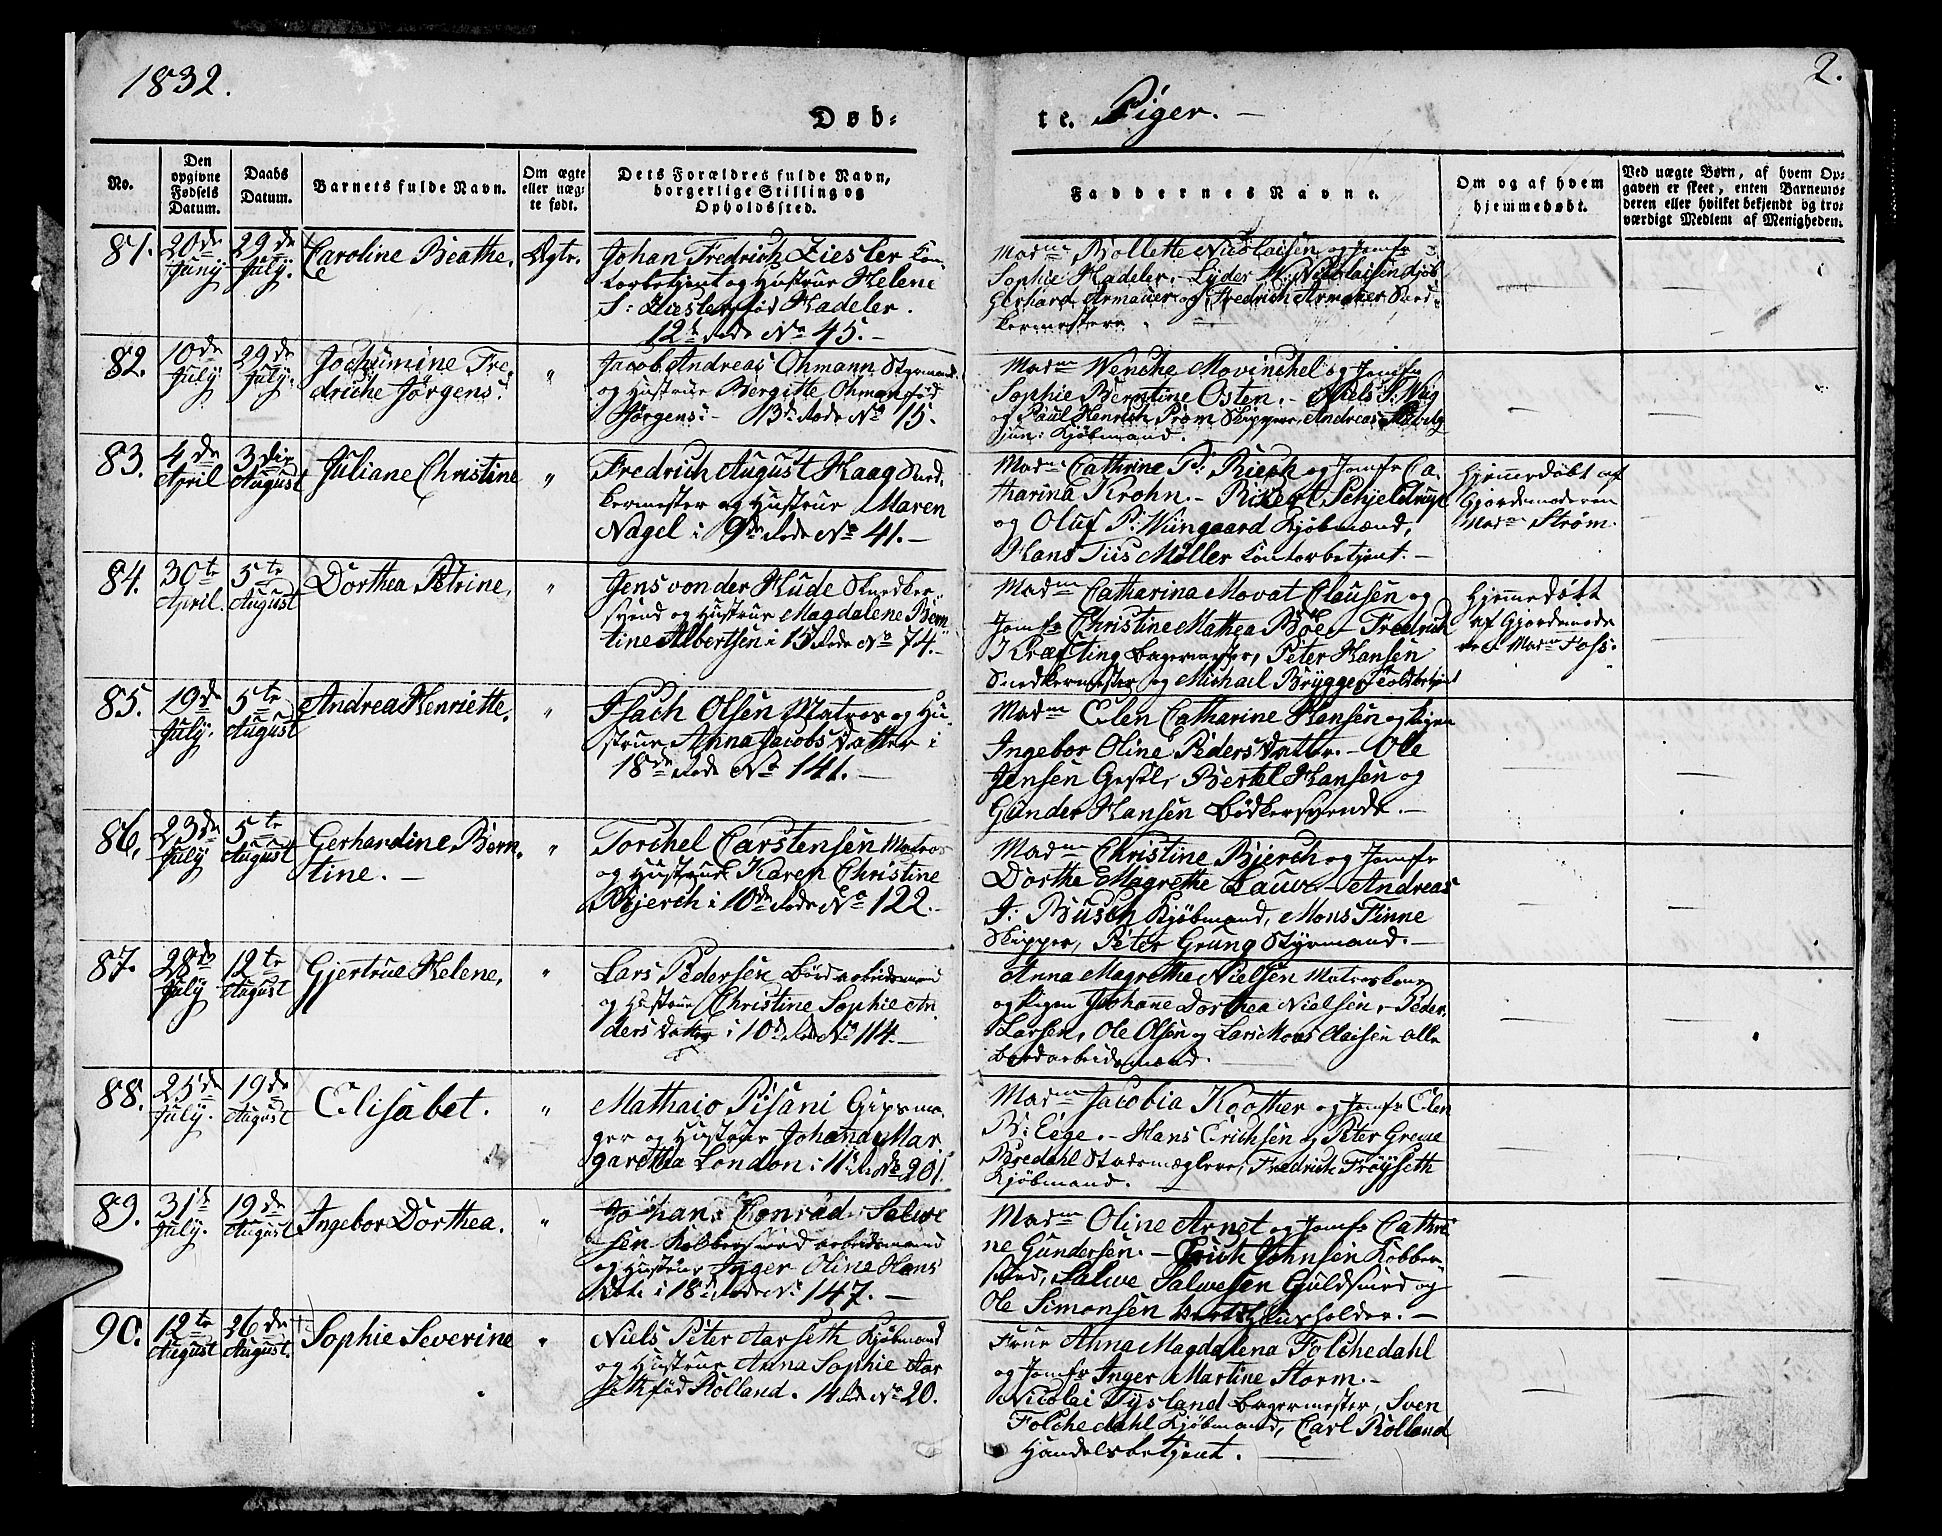 1832.
2.
Døb-
te. Piger. -
No.
Den
opgivne
Fødsels
Datum.
Daabs
Datum.
Barnets fulde Navn.
Om ægte
eller uæg-
te født.
Dets Forældres fulde Navn,
borgerlige Stilling og
Opholdssted.
Faddernes Navne.
Om og af hvem
hjemmedøbt.
Ved uægte Børn, af hvem Op-
gaven er skeet, enten Barnemo-
deren eller hvilket bekjendt og tro-
værdigt Medlem af Menigheden.
81. 20de Juny 29de July. Caroline Beathe. Ægte.
Johan Fredrich Ziesler Con-
torbetjent og Hustrue Helene
S: Ziesler fød Kadeler.
12te Rode No 45. -
Madme Bollette Nicolaisen og Jomfr
Sophie Kadeler. Lyder W: Nicolaisen Kjøb
Gerhard Armauer og Fredrich Armauer Sned-
kermestere.
82. 10de July 29de July. Jochumine Fre-
driche Jørgens:
"
Jacob Andreas Ohmann Styrmand
og Hustrue Bergitte Ohman fød
Jørgens: - 13de Rode No 15.
Madme Wenche Movinchel og Jomfr
Sophie Berntine Osten. - Niels
og Paul Henrich Prom Skippere, Andreas
jun: Kjøbmand.
83. 4de April 3die August Juliane Christine "
Fredrich August Haag Sned-
kermester og Hustrue Maren
Nagel i 9de Rode No 41. -
Madme Cathrine P: Bierh og Jomfr Ca-
tharina Krohn. - Rikert Schjelderup
og Oluf P: Wiingaard Kjøbmænd,
Hans Tiis Møller Contorbetjent. -
Hjemmedøbt af
Gjordemoderen
Madme Strøm.
84. 30te April. 5te August Dorthea Petrine, "
Jens von der Hude Snedker-
svend og Hustrue Magdalene Bern-
tine Albertsen i 15 Rode No 74. -
Madme Catharina Movat Clausen og
Jomfr Christine Mathea Bøe - Fredrich
Kræfting Bagermester, Peter Hansen
Snedkermester og Michael Brygger Toldbetjent
Hjemmedøbt
af Gjordemode
ren Madme Foss.
85. 19de July. 5te August Andrea Henriette. "
Isach Olsen Matros og Hu-
strue Anna Jacobs Datter i
18de Rode No 141. -
Madme Elen Catharine Hansen og Pigen
Ingebor Oline Peders Datter. - Ole
Jensen Gesel, Bertel Hansen og
Gunder Hansen Bødkersvende. -
86. 23de July 5te August Gerhardine Bern-
tine. -
"
Torchel Carstensen Matros
og Hustrue Karen Christine
Bjerch i 10de Rode No 122. -
Madme Christine Bjerch og Jomfr
Dorthe Magrethe Lauve - Andreas
J: Busch Kjøbmand, Mons Finne
Skipper, Peter Grung Styrmand. -
87. 28de July 12te August Gjertrue Helene, "
Lars Pedersen Bordarbeidsmand
og Hustrue Christine Sophie An-
ders Datter i 10de Rode No 114. -
Anna Magrethe Nielsen Matroskone
og Pigen Johane Dorthea Nielsen - Peder
Larsen, Ole Olsen og Lars Mons Claisen alle
Bordarbeidsmænd.
88. 25de July. 19de August Elisabet. "
Mathaio Pisani Gipsma-
ger og Hustrue Johana Mar
garetha London i 11te Rode 201.
Madme Jacobia Koother og Jomfr Elen
B: Eege. - Hans Erichsen og Peter Greve
Bredahl Stadsmæglere, Fredrich Frøyseth
Kjøbmand.
89. 31te July. 19de August Ingebor Dorthea. "
Johan Conrad Salve
sen Kobbersmed arbeidsmand
og Hustrue Inger Oline Hans
Datr i 18de Rode No 147. -
Madme Oline Arnet og Jomfr Cathri
ne Gundersen. - Erich Johnsen Kobber-
smed, Salve Salvesen Guldsmed og
Ole Simonsen Vertshuusholder. -
90. 12te August 26de August. Sophie Severine "
Niels Peter Aarseth Kjøbmand
og Hustrue Anna Sophie Aar
seth fød Rolland. 4 Rode No 20.
Frue Anna Magdalena Folchedahl
og Jomfr Inger Martine Storm. -
Nicolai Tysland Bagermester, Sven
Folchedahl Kjøbmand, Carl Rolland
Handelsbetjent. -